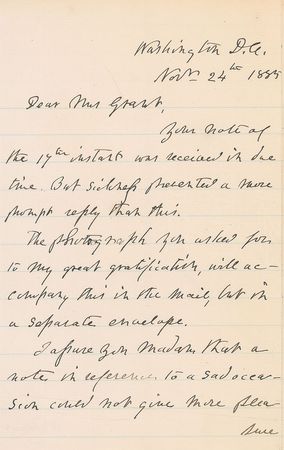 Washington D.C.
Novr 24th 1885
Dear Mrs Grant,
Your note of
the 17th instant was received in due
time. But sickness prevented a more
prompt reply than this.
The photograph you asked for
to my great gratification, will ac-
company this in the mail, but in
a separate envelope.
I assure you Madam that a
note in reference to a sad occa-
sion could not give more plea
sure